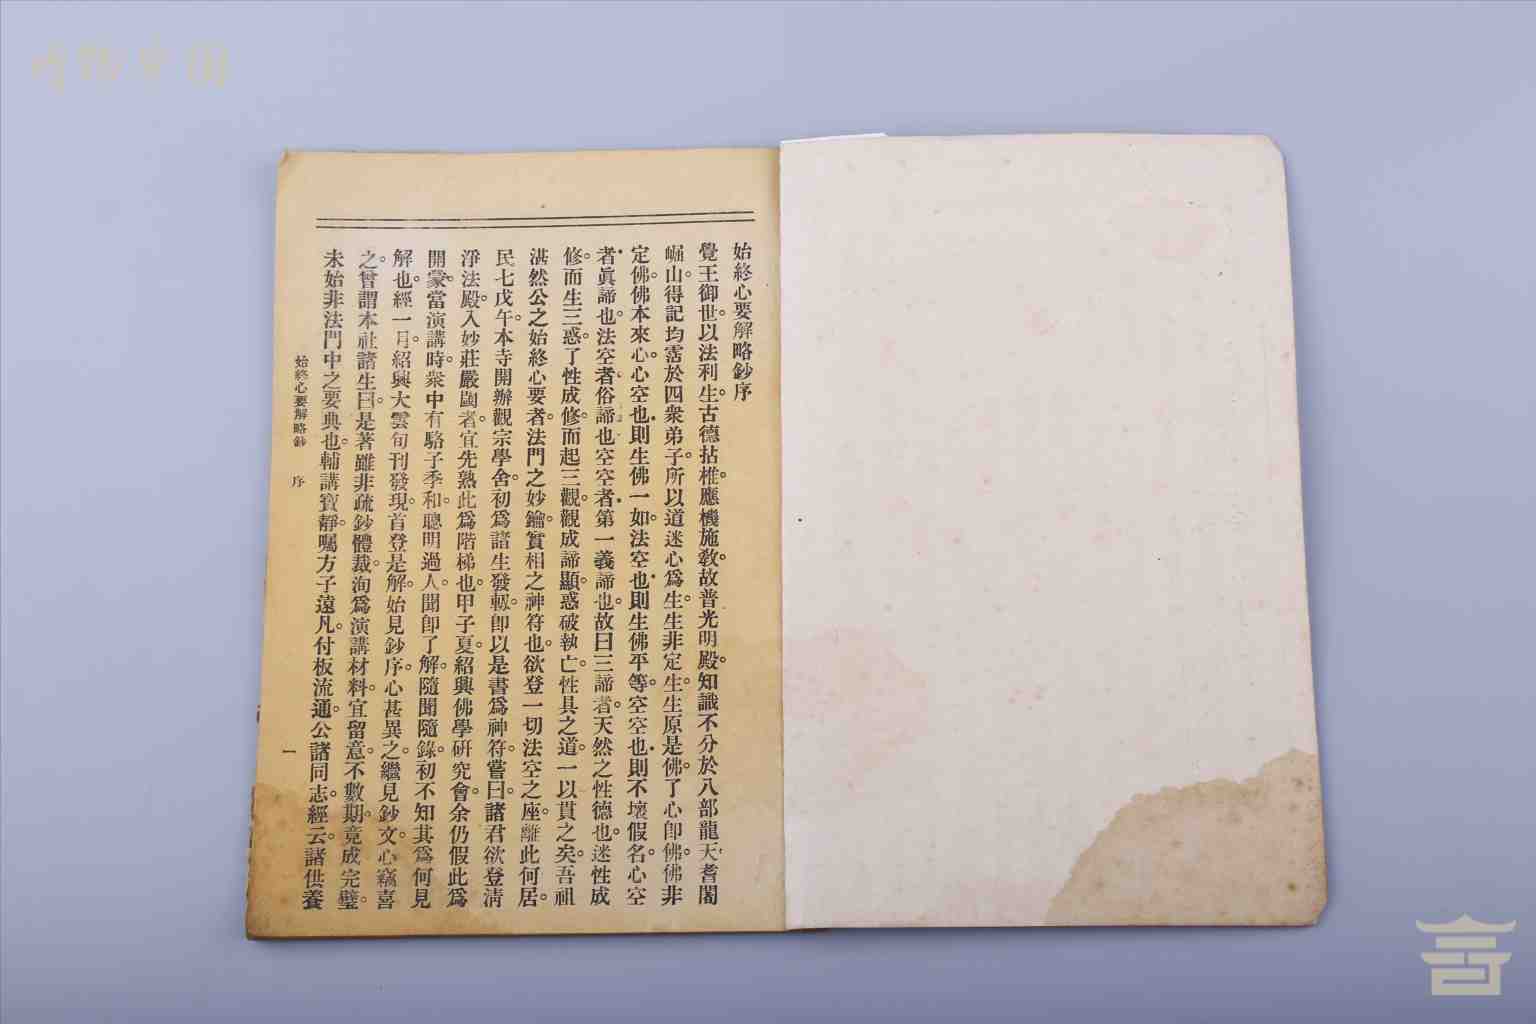 始終心要解略鈔序
覺王御世。以法利生。古德拈椎。應機施教。故普光明殿。知識不分於八部龍天。耆闍
崛山。得記均霑於四衆弟子。所以道迷心爲生。生非定生。生原是佛。了心卽佛。佛非
定佛。佛本來心。心空也。則生佛一如。法空也。則生佛平等。空空也。則不壞假名。心空
者。眞諦也。法空者。俗諦也。空空者。第一義諦也。故曰三諦者。天然之性德也。迷性成
修。而生三惑。了性成修。而起三觀。觀成諦顯。惑破執亡。性具之道。一以貫之矣。吾祖
湛然公之始終心要者。法門之妙鑰。實相之神符也。欲登一切法空之座。離此何居。
民七戊午。本寺開辦觀宗學舍。初爲諸生發軔。卽以是書爲神符。嘗曰。諸君欲登淸
淨法殿。入妙莊嚴閾者。宜先熟此爲階梯也。甲子夏。紹興佛學研究會。余仍假此爲
開蒙。當演講時。衆中有駱子季和。聰明過人。聞卽了解。隨聞隨錄。初不知其爲何見
解也。經一月。紹興大雲旬刊發現。首登是解。始見鈔序。心甚異之。繼見鈔文。心竊喜
之。曾謂本社諸生曰。是著雖非疏鈔體裁。洵爲演講材料。宜留意。不數期。竟成完璧。
未始非法門中之要典也。輔講寶靜。囑方子遠凡。付板流通。公諸同志。經云。諸供養
始終心要解略鈔　序
一